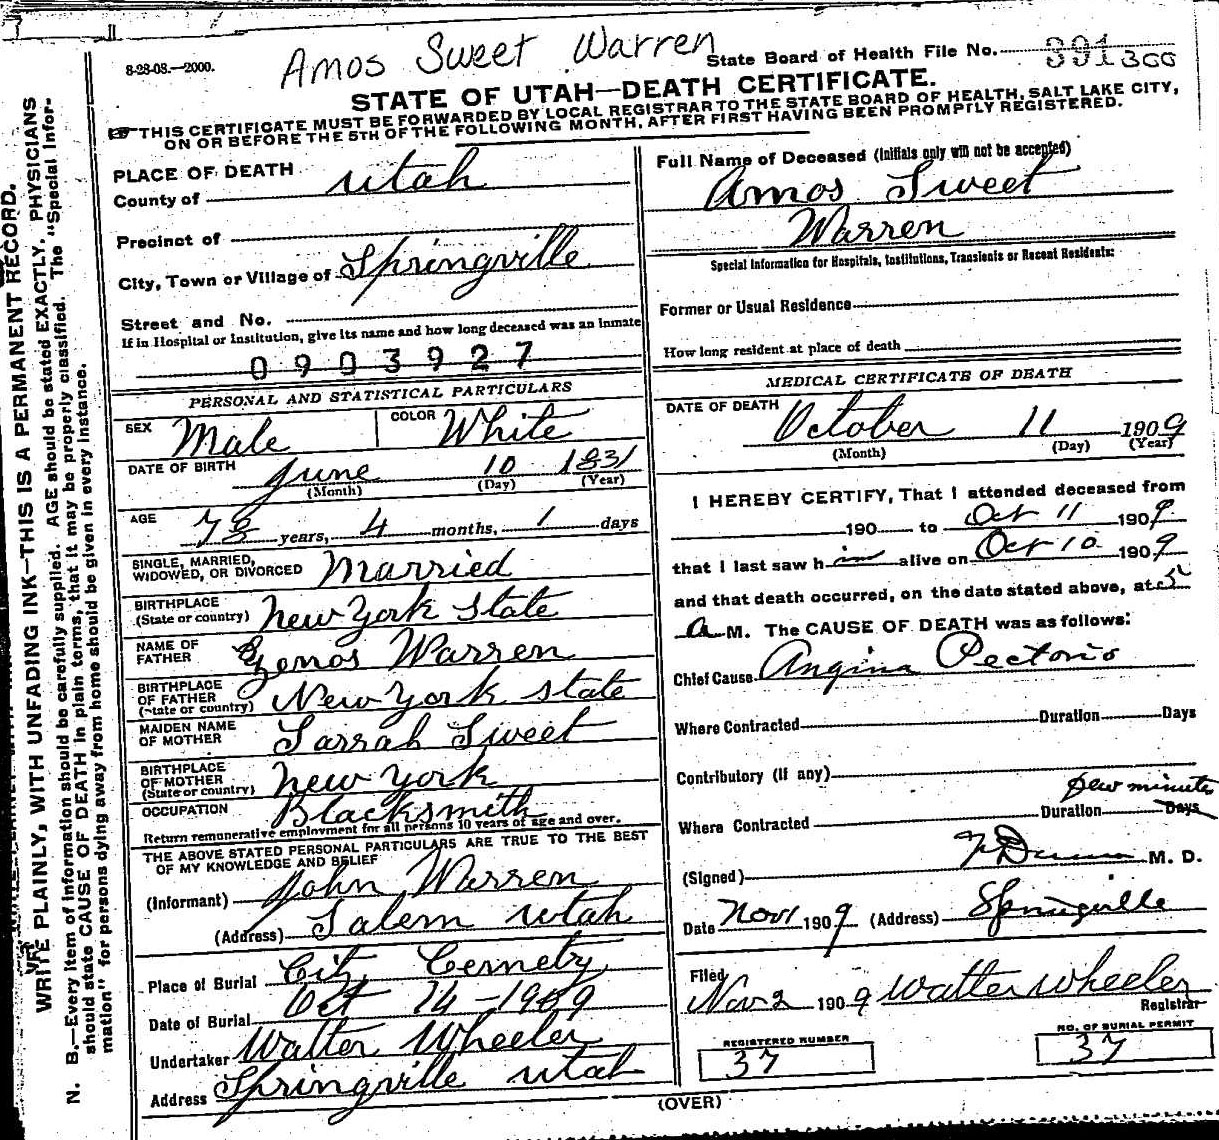 Amos Sweet Warren
8-28-08.—2000.
State Board of Health File No. 391 300
STATE OF UTAH—DEATH CERTIFICATE.
THIS CERTIFICATE MUST BE FORWARDED BY LOCAL REGISTRAR TO THE STATE BOARD OF HEALTH, SALT LAKE CITY,
ON OR BEFORE THE 5TH OF THE FOLLOWING MONTH, AFTER FIRST HAVING BEEN PROMPTLY REGISTERED.
WRITE PLAINLY, WITH UNFADING INK—THIS IS A PERMANENT RECORD.
N. B.—Every item of information should be carefully supplied. AGE should be stated EXACTLY. PHYSICIANS
should state CAUSE OF DEATH in plain terms, that it may be properly classified. The "Special Infor-
mation" for persons dying away from home should be given in every instance.
PLACE OF DEATH
County of Utah
Precinct of
City, Town or Village of Springville
Street and No.
If in Hospital or Institution, give its name and how long deceased was an inmate
0903927
PERSONAL AND STATISTICAL PARTICULARS
SEX Male COLOR White
DATE OF BIRTH June 10 1831
(Month) (Day) (Year)
AGE 78 years, 4 months, 1 days
SINGLE, MARRIED,
WIDOWED, OR DIVORCED Married
BIRTHPLACE
(State or country) New York State
NAME OF
FATHER Zenos Warren
BIRTHPLACE
OF FATHER
(State or country) New York State
MAIDEN NAME
OF MOTHER Sarrah Sweet
BIRTHPLACE
OF MOTHER
(State or country) New York
OCCUPATION Blacksmith
Return remunerative employment for all persons 10 years of age and over.
THE ABOVE STATED PERSONAL PARTICULARS ARE TRUE TO THE BEST
OF MY KNOWLEDGE AND BELIEF
(Informant) John Warren
(Address) Salem Utah
Place of Burial City Cemetry
Date of Burial Oct 14-1909
Undertaker Walter Wheeler
Address Springville Utah
Full Name of Deceased (Initials only will not be accepted)
Amos Sweet
Warren
Special Information for Hospitals, Institutions, Transients or Recent Residents:
Former or Usual Residence
How long resident at place of death
MEDICAL CERTIFICATE OF DEATH
DATE OF DEATH October 11 1909
(Month) (Day) (Year)
I HEREBY CERTIFY, That I attended deceased from
190 to Oct 11 1909
that I last saw him alive on Oct 10 1909
and that death occurred, on the date stated above, at 5
A M. The CAUSE OF DEATH was as follows:
Chief Cause Angina Pectoris
Where Contracted Duration Days
Contributory (if any)
few minutes
Where Contracted Duration Days
(Signed) M. D.
Date Nov 1 1909 (Address) Springville
Filed
Nov 2 1909 Walter Wheeler
Registrar
REGISTERED NUMBER
37
NO. OF BURIAL PERMIT
37
(OVER)